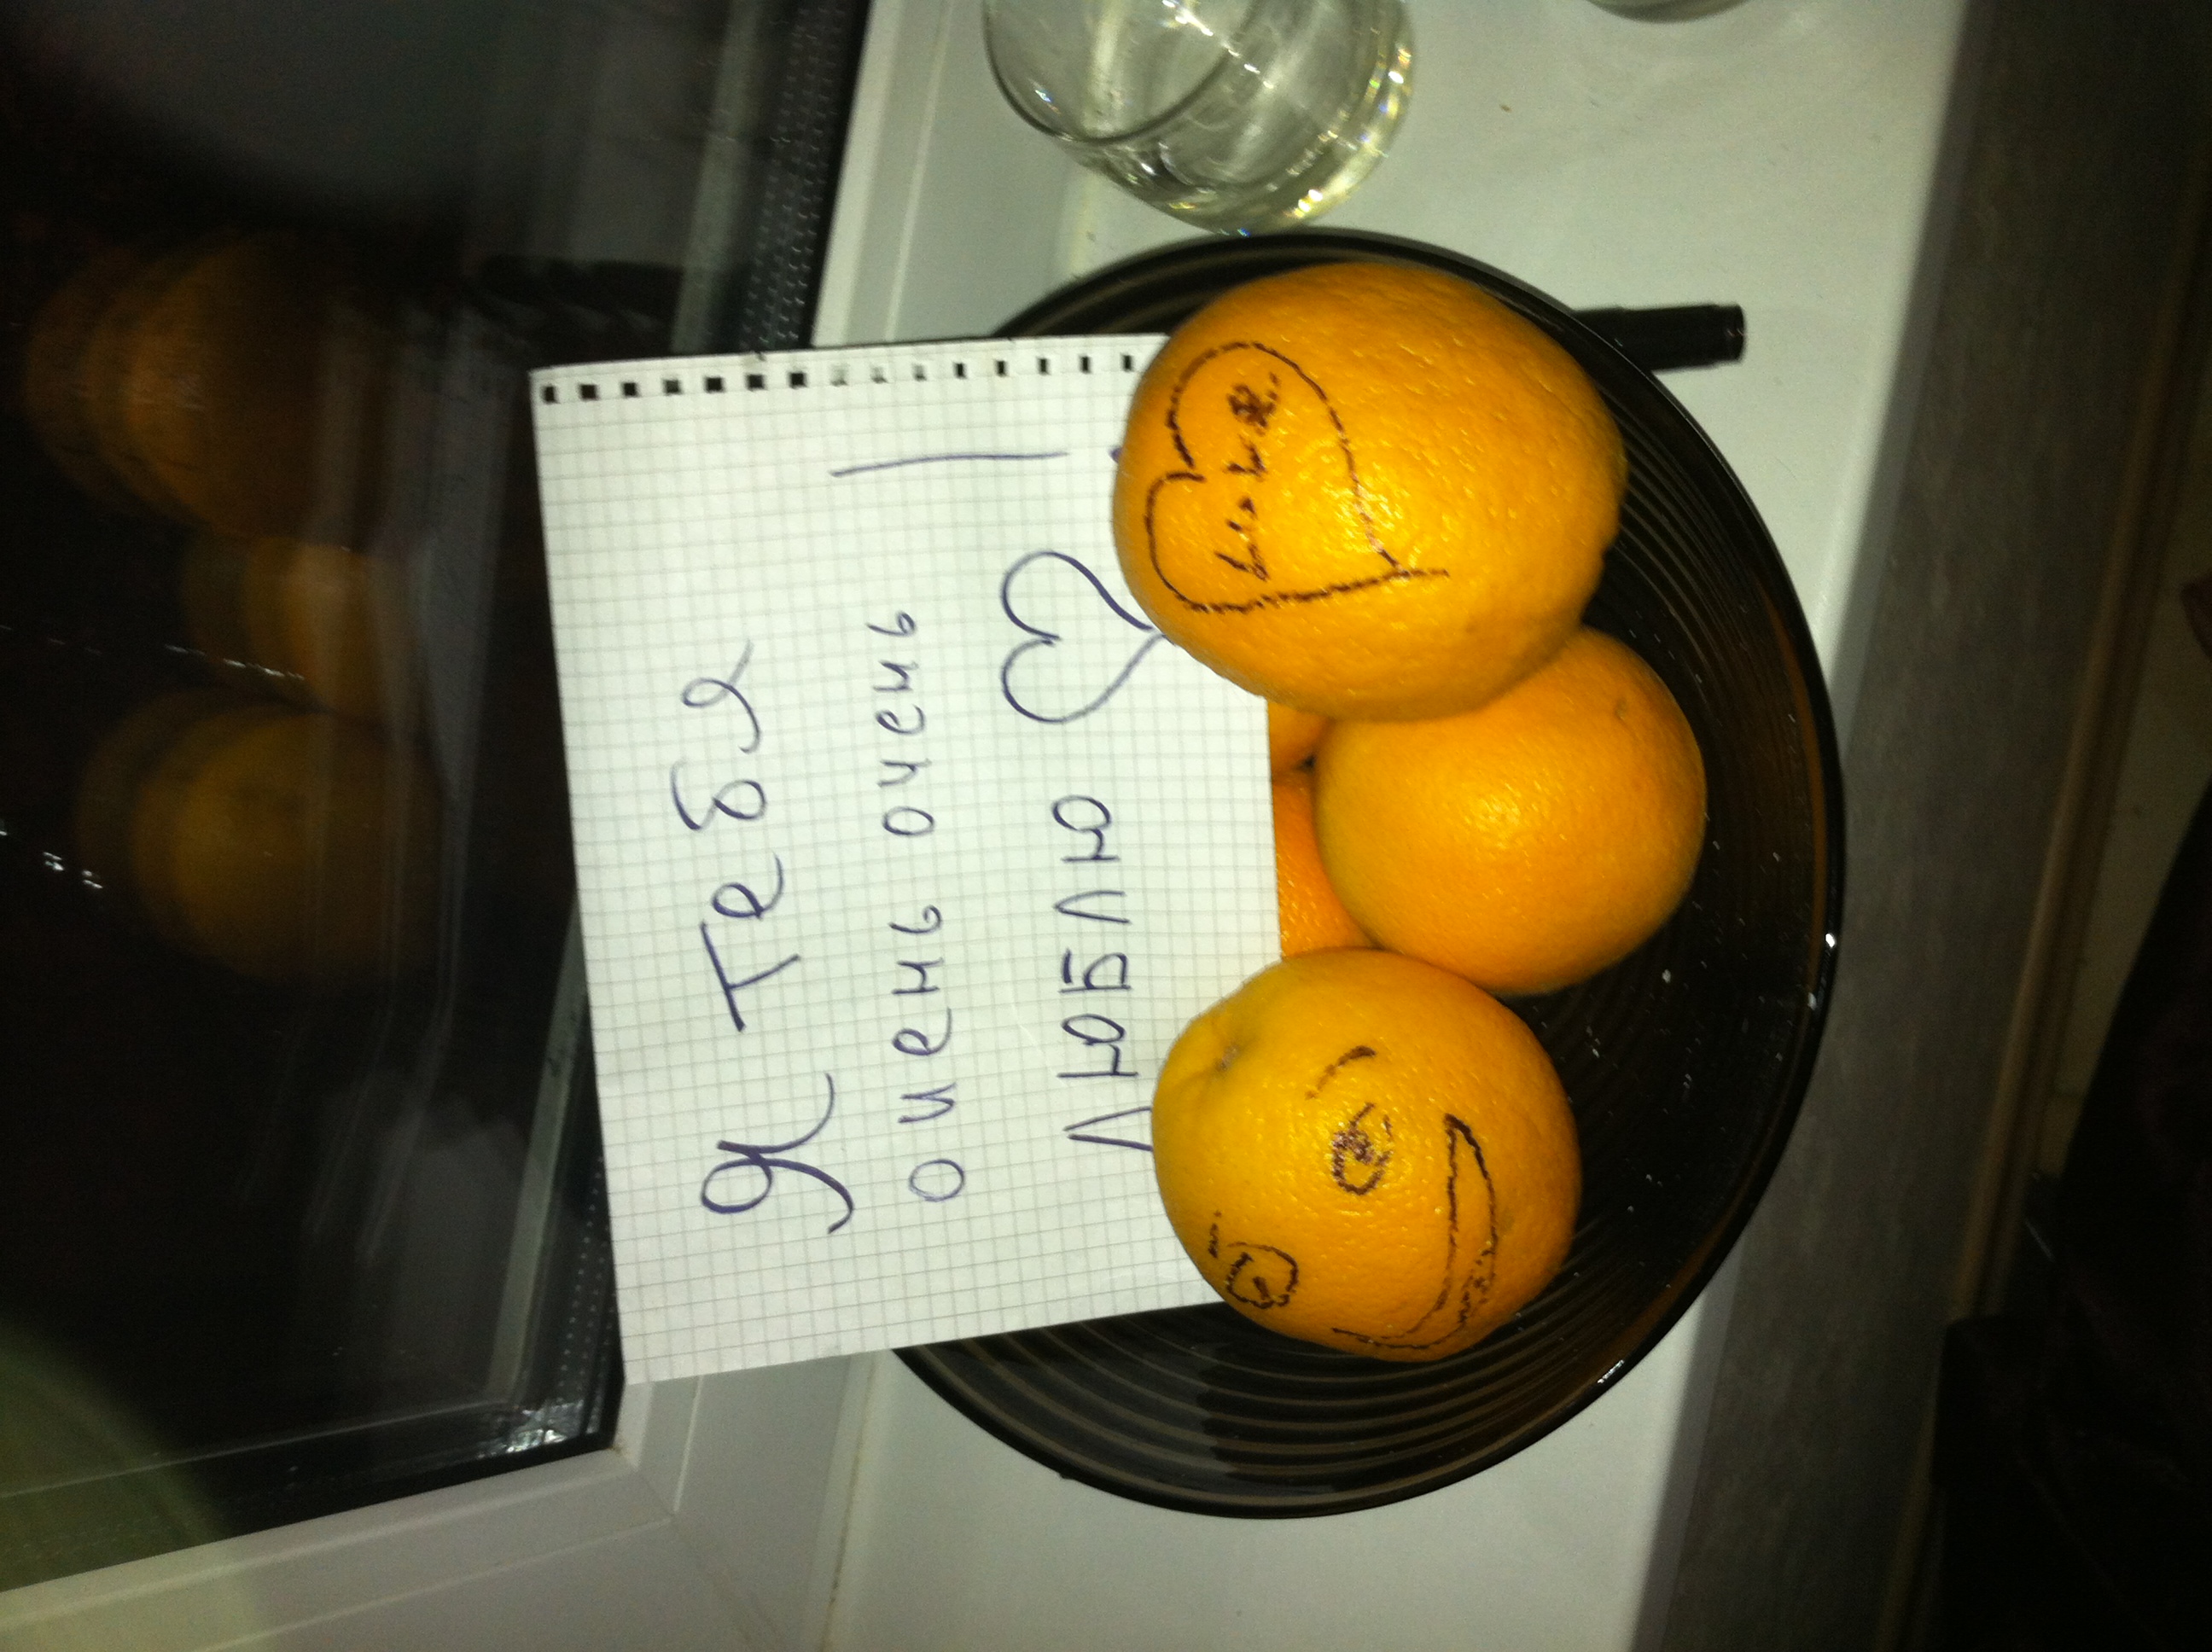 Я тебя
очень очень
ЛЮБЛЮ !
Love